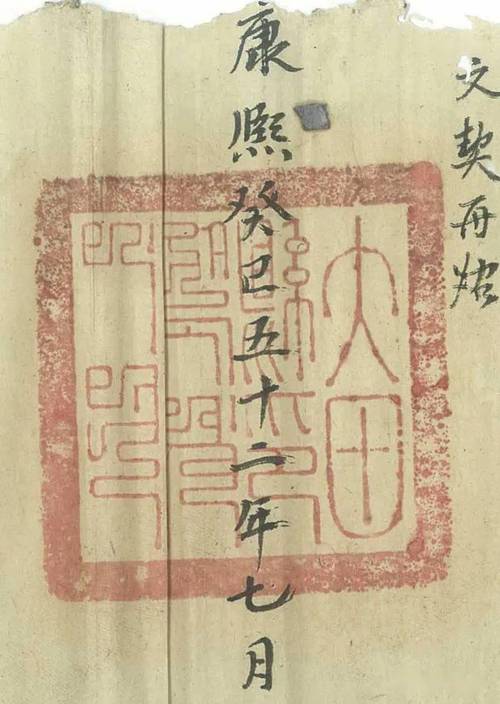 文契再炤
康熙癸巳五十二年七月
大田
縣印